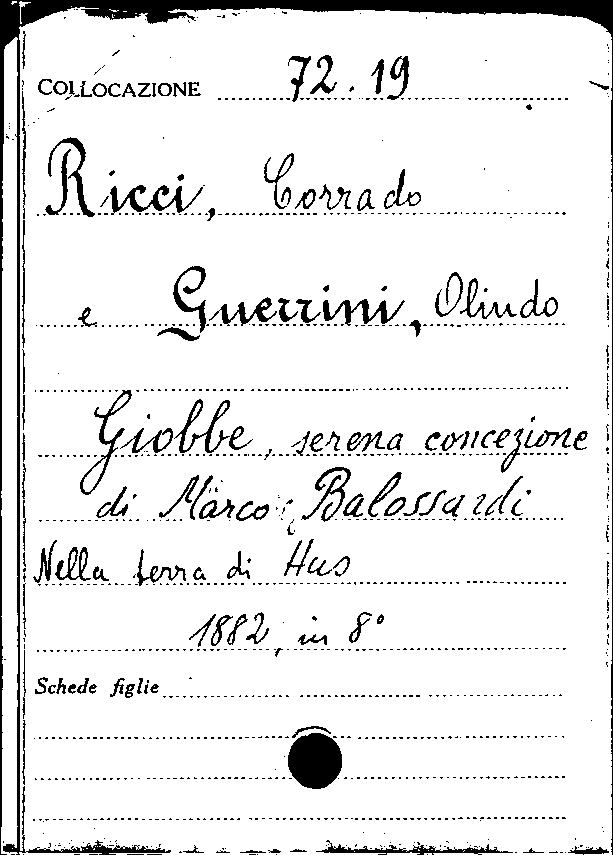 COLLOCAZIONE 72.19
Ricci, Corrado
e Guerrini, Olindo
Giobbe, serena concezione
di Marco Balossardi
Nella terra di Hus
1882, in 8°
Schede figlie